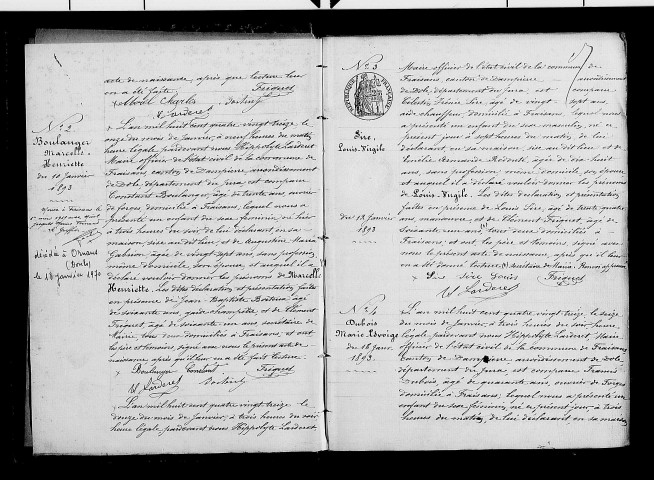 acte de naissance, après que lecture leur
en a été faite
N° 2
Boulanger
Marcelle
Henriette
du 10 Janvier
1893
décédée à Ornans
(Doubs)
le 18 janvier 1970
L'an mil huit cent quatre vingt treize, le
onze du mois de Janvier, à neuf heures du matin,
heure légale pardevant nous Hippolyte Larderet
Maire officier de l'état civil de la commune de
Fraisans, canton de Dampierre, arrondissement
de Dole, département du Jura, est comparu
Constant Boulanger, âgé de trente ans, ouvrier
de forges domicilié à Fraisans, lequel nous a
présenté un enfant du sexe féminin, né hier
à trois heures du soir, de lui déclarant en sa
maison, sise au dit lieu et de Augustine Maria
âgée de vingt sept ans, sans profession
même domicile, son épouse, et auquel il a
déclaré vouloir donner les prénoms de Marcelle
Henriette. Les dites déclaration et présentation faites
en présence de Jean-Baptiste âgé
de soixante ans, garde champêtre, et de Clément
Fréquet, âgé de soixante un ans secrétaire de
Mairie, tous deux domiciliés à Fraisans, et ont
les père et témoins signé avec nous le présent acte de
naissance après qu'il leur en a été fait lecture.
Boulanger Constant Fréquet
H. Larderet
L'an mil huit cent quatre vingt treize le
douze du mois de Janvier, à trois heures du soir
heure légale, pardevant nous Hippolyte Larderet
N° 3
Sire
Louis-Virgile
du 12 Janvier
1893
Maire officier de l'état civil de la commune de
Fraisans, canton de Dampierre, arrondissement
de Dole, département du Jura, est comparu
Célestin Sire, âgé de vingt sept ans,
aide chauffeur, domicilié à Fraisans, lequel nous
a présenté un enfant du sexe masculin, né ce
présent jour à sept heures du matin, de lui
déclarant, en sa maison, sise au dit lieu et de
Amanda âgée de dix huit
ans, sans profession, même domicile, son épouse
et auquel il a déclaré vouloir donner les prénoms
de Louis-Virgile. Les dites déclaration et présentation
faites en présence de Louis Sire, âgé de trente quatre
ans, et de Clément Fréquet, âgé de
soixante un ans, tous deux domiciliés à
Fraisans; et ont les père et témoins, signé avec
nous le présent acte de naissance, après qu'il leur
en a été donné lecture.
Sire Louis Fréquet
H. Larderet
N° 4
Dubois
Marie-Edwige
du 16 Janv.
1893
L'an mil huit cent quatre vingt treize, le seize
du mois de Janvier, à trois heures du soir heure
légale, pardevant nous Hippolyte Larderet Maire
officier de l'état civil de la commune de Fraisans,
canton de Dampierre arrondissement de Dole,
département du Jura, est comparu Francis
Dubois, âgé de quarante ans, ouvrier de forges
domicilié à Fraisans, lequel nous a présenté un
enfant du sexe féminin, né ce présent jour à trois
heures du matin, de lui déclarant, en sa maison